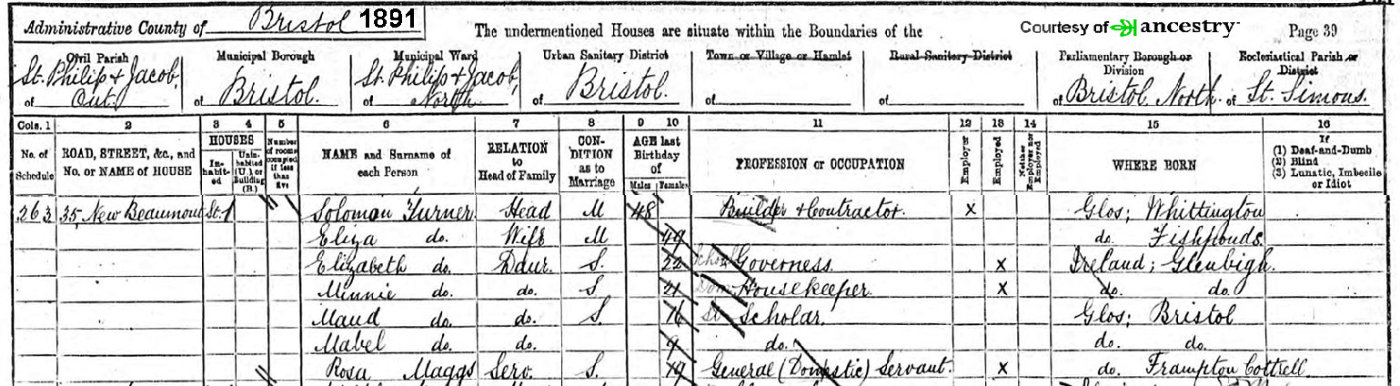 Administrative County of Bristol 1891 The undermentioned Houses are situate within the Boundaries of the Courtesy of ancestry Page 39
Civil Parish Municipal Borough Municipal Ward Urban Sanitary District Town or Village or Hamlet Rural Sanitary District Parliamentary Borough or Division Ecclesiastical Parish or District
of St. Philip & Jacob, Out of Bristol. of St. Philip & Jacob, North. of Bristol. of of of Bristol North. of St. Simons.
Cols. 1 2 3 4 5 6 7 8 9 10 11 12 13 14 15 16
No. of Schedule ROAD, STREET, &c., and No. or NAME of HOUSE HOUSES Inhabited Uninhabited (U.) or Building (B.) Number of rooms occupied if less than five NAME and Surname of each Person RELATION to Head of Family CONDITION as to Marriage AGE last Birthday of Males Females PROFESSION or OCCUPATION Employer Employed Neither Employer nor Employed WHERE BORN If (1) Deaf-and-Dumb (2) Blind (3) Lunatic, Imbecile or Idiot
263 35, New Beaumont St. 1 Solomon Turner Head M 48 Builder & Contractor. X Glos; Whittington
Eliza do. Wife M 49 do. Fishponds.
Elizabeth do. Daur. S. 22 Governess. X Ireland; Glenbigh.
Minnie do. do. S 21 Housekeeper X do. do.
Maud do. do. S. 16 Scholar. Glos; Bristol
Mabel do. do. 9 do. do. do.
Rosa Maggs Serv. S. 19 General (Domestic) Servant. X do. Frampton Cottrell